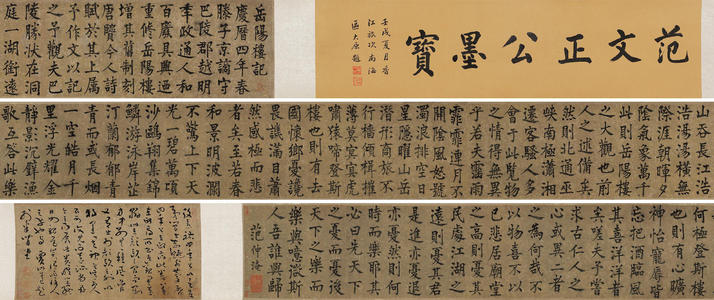 范文正公墨寶
壬戌夏月香
江旅次南海
區大原題
岳陽樓記
慶曆四年春
滕子京謫守
巴陵郡越明
年政通人和
百廢具興迺
重修岳陽樓
增其舊制刻
唐賢今人詩
賦於其上屬
予作文以記
之予觀夫巴
陵勝狀在洞
庭一湖銜遠
山吞長江浩
浩湯湯橫無
際涯朝暉夕
陰氣象萬千
此則岳陽樓
之大觀也前
人之述備矣
然則北通巫
峽南極瀟湘
遷客騷人多
會于此覽物
之情得無異
乎若夫霪雨
霏霏連月不
開陰風怒號
濁浪排空日
星隱曜山岳
潛形商旅不
行檣傾楫摧
薄暮冥冥虎
嘯猿啼登斯
樓也則有去
國懷鄉憂讒
畏譏滿目蕭
然感極而悲
者矣至若春
和景明波瀾
不驚上下天
光一碧萬頃
沙鷗翔集錦
鱗游泳岸芷
汀蘭郁郁青
青而或長煙
一空皓月千
里浮光躍金
靜影沉璧漁
歌互答此樂
何極登斯樓
也則有心曠
神怡寵辱皆
忘把酒臨風
其喜洋洋者
矣嗟夫予嘗
求古仁人之
心或異二者
之為何哉不
以物喜不以
己悲居廟堂
之高則憂其
民處江湖之
遠則憂其君
是進亦憂退
亦憂然則何
時而樂耶其
必曰先天下
之憂而憂後
天下之樂而
樂與噫微斯
人吾誰與歸
范仲淹